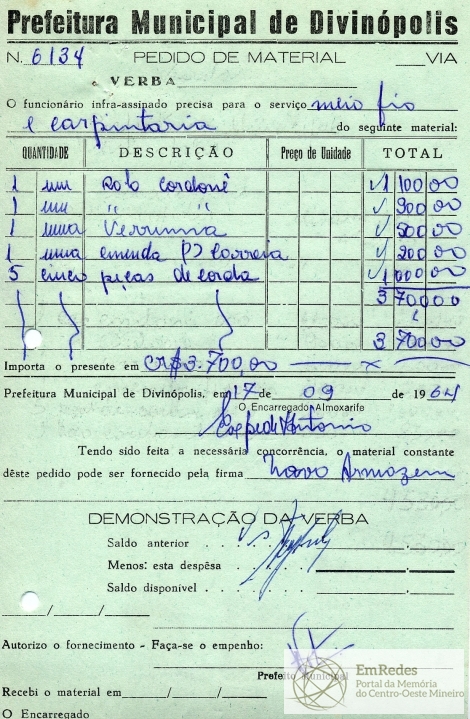 Prefeitura Municipal de Divinópolis
N. 6134 PEDIDO DE MATERIAL VIA
VERBA
O funcionário infra-assinado precisa para o serviço meio fio
e carpintaria do seguinte material:
QUANTIDADE DESCRIÇÃO Preço de Unidade TOTAL
1 um rolo cordonê 1 100 00
1 um " " 900 00
1 uma Verruma 500 00
1 uma emenda P) Correia 200 00
5 cinco peças de corda 1 000 00
3 700 00
3 700 00
Importa o presente em CR$3.700,00 x
Prefeitura Municipal de Divinópolis, em 17 de 09 de 1964
O Encarregado Almoxarife
Tendo sido feita a necessária concorrência, o material constante
dêste pedido pode ser fornecido pela firma Novo Armazem
DEMONSTRAÇÃO DA VERBA
Saldo anterior . . .
Menos: esta despêsa
Saldo disponível . .
Autorizo o fornecimento - Faça-se o empenho:
Prefeito Municipal
Recebi o material em / /
O Encarregado
EmRedes
Portal da Memória
do Centro-Oeste Mineiro